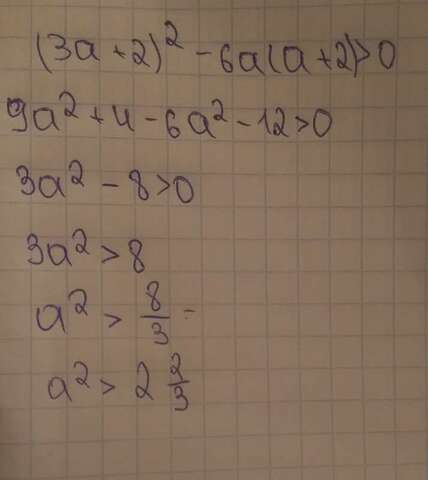 (3a+2)² - 6a(a+2)>0
9a²+4-6a²-12>0
3a²-8>0
3a²>8
a² > 8/3 -
a² > 2 2/3